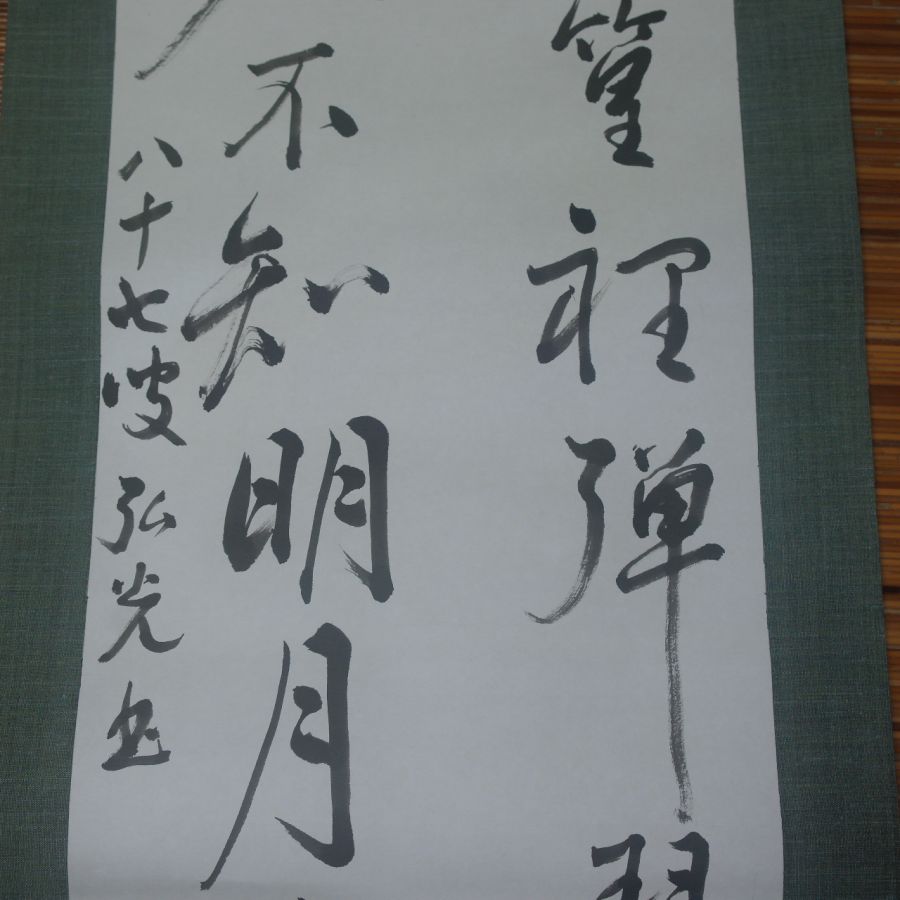 篁裡弾
不知明月
八十七叟弘光書